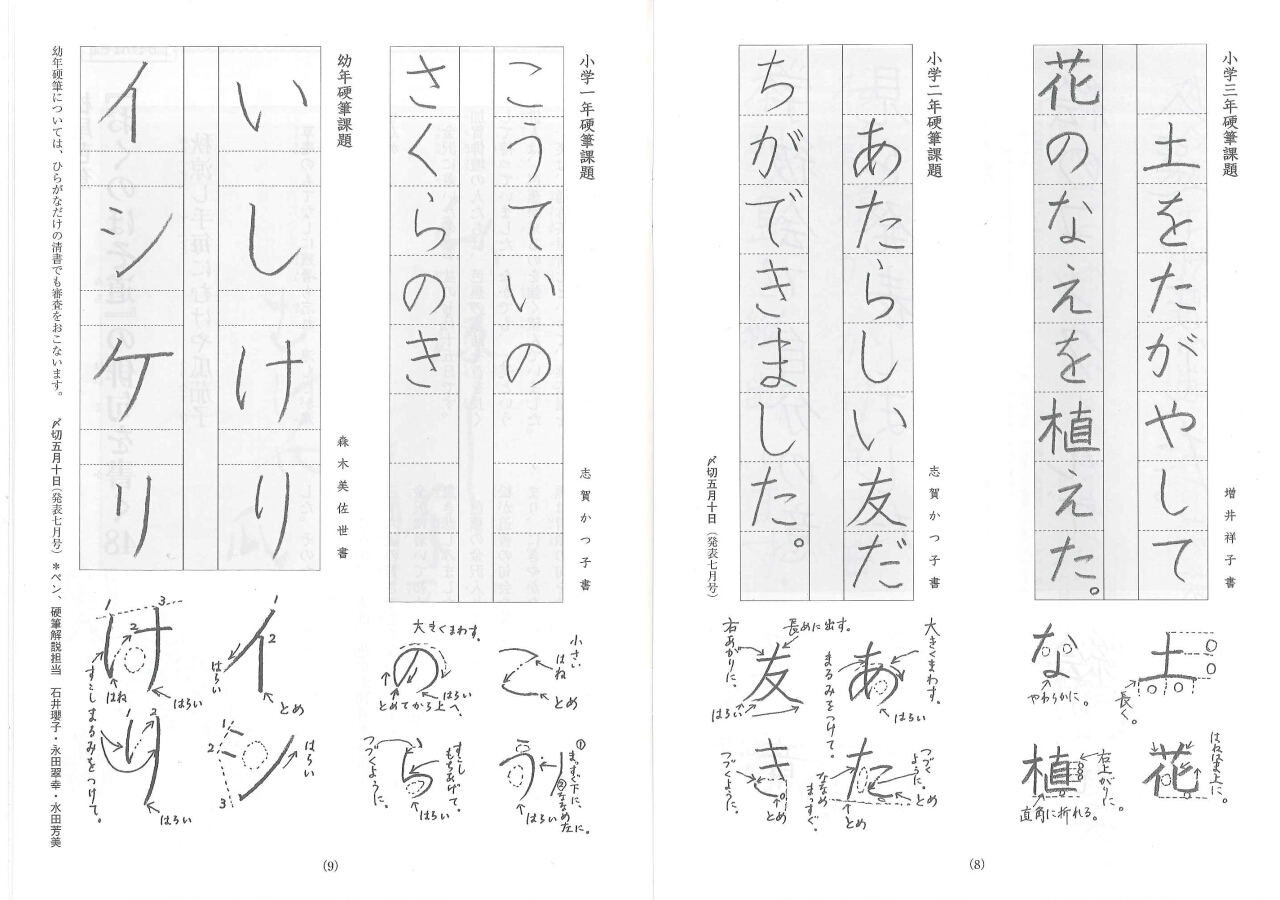 小学三年硬筆課題
増井祥子書
土をたがやして
花のなえを植えた。
土
長く。
な
やわらかに。
花
はねは上に。
植
右上がりに。
直角に折れる。
小学二年硬筆課題
志賀かつ子書
あたらしい友だ
ちができました。
〆切五月十日(発表七月号)
あ
大きくまわす。
まるみをつけて。
はらい
友
長めに出す。
右あがりに。
はらい
た
つづくように。
とめ
とめ
ななめまっすぐ。
き
とめ
つづくように。
(8)
小学一年硬筆課題
志賀かつ子書
こうていの
さくらのき
こ
小さいはね
とめ
の
大きくまわす。
はらい
とめてから上へ。
う
①まっすぐ下に、
②ななめ左に。
はらい
ら
すこしもちあげて。
つづくように。
はらい
幼年硬筆課題
森木美佐世書
いし けり
イシ ケリ
イ
1
2
はらい
とめ
け
1
2
3
はね
はらい
シ
1
2
3
はらい
り
1
2
すこしまるみをつけて。
はらい
幼年硬筆については、ひらがなだけの清書でも審査をおこないます。 〆切五月十日(発表七月号) *ペン、硬筆解説担当 石井瓔子・永田翠幸・水田芳美
(9)